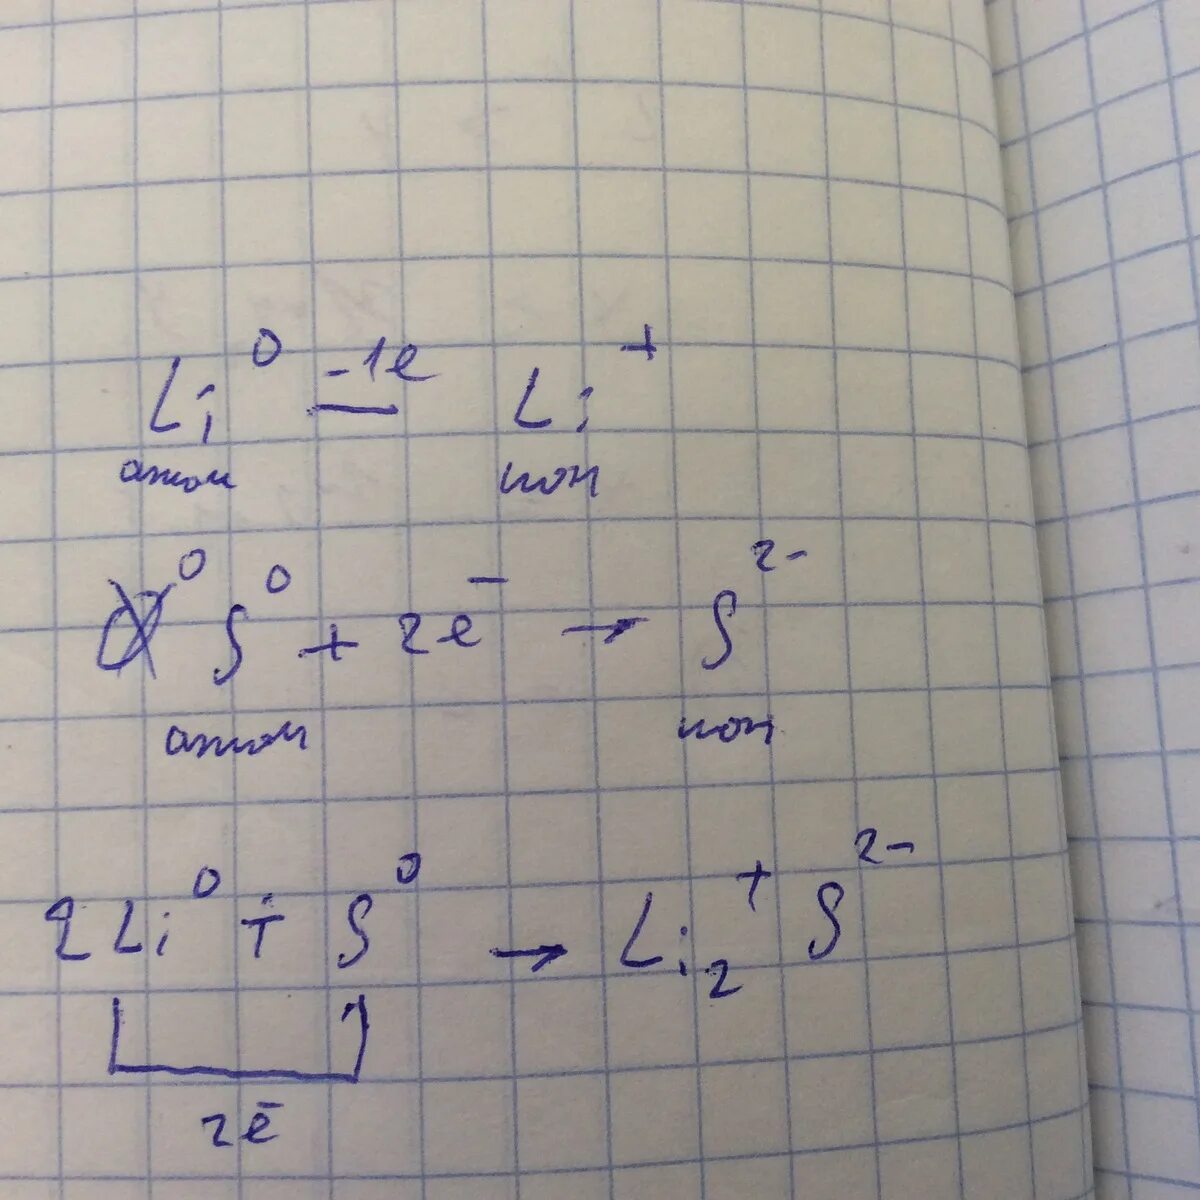 Li⁰ -1e Li⁺
атом ион
S⁰ + 2e⁻ → S²⁻
атом ион
2Li⁰ + S⁰ → Li₂⁺ S²⁻
2ē